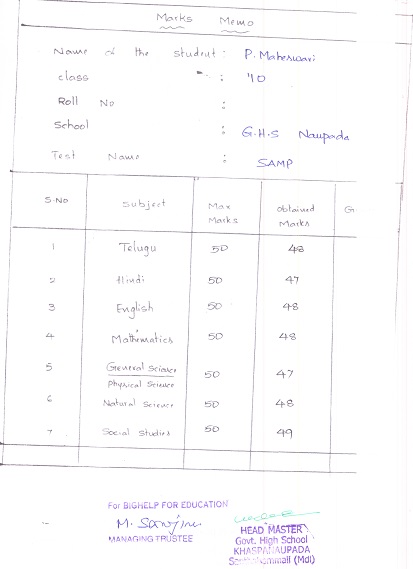 Marks Memo
Name of the student : P. Maheswari
class : 10
Roll No :
School : G.H.S Naupada
Test Name : SAMP
S.No Subject Max Marks Obtained Marks G
1 Telugu 50 48
2 Hindi 50 47
3 English 50 48
4 Mathematics 50 48
5 General Science 50 47
Physical Science
6 Natural Science 50 48
7 Social Studies 50 49
For BIGHELP FOR EDUCATION
MANAGING TRUSTEE
HEAD MASTER
Govt. High School
KHASPANAUPADA
(Mdl)